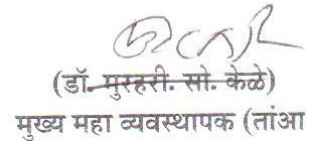 (डॉ. मुरहरी. सो. केळे)
मुख्य महा व्यवस्थापक (तांआ